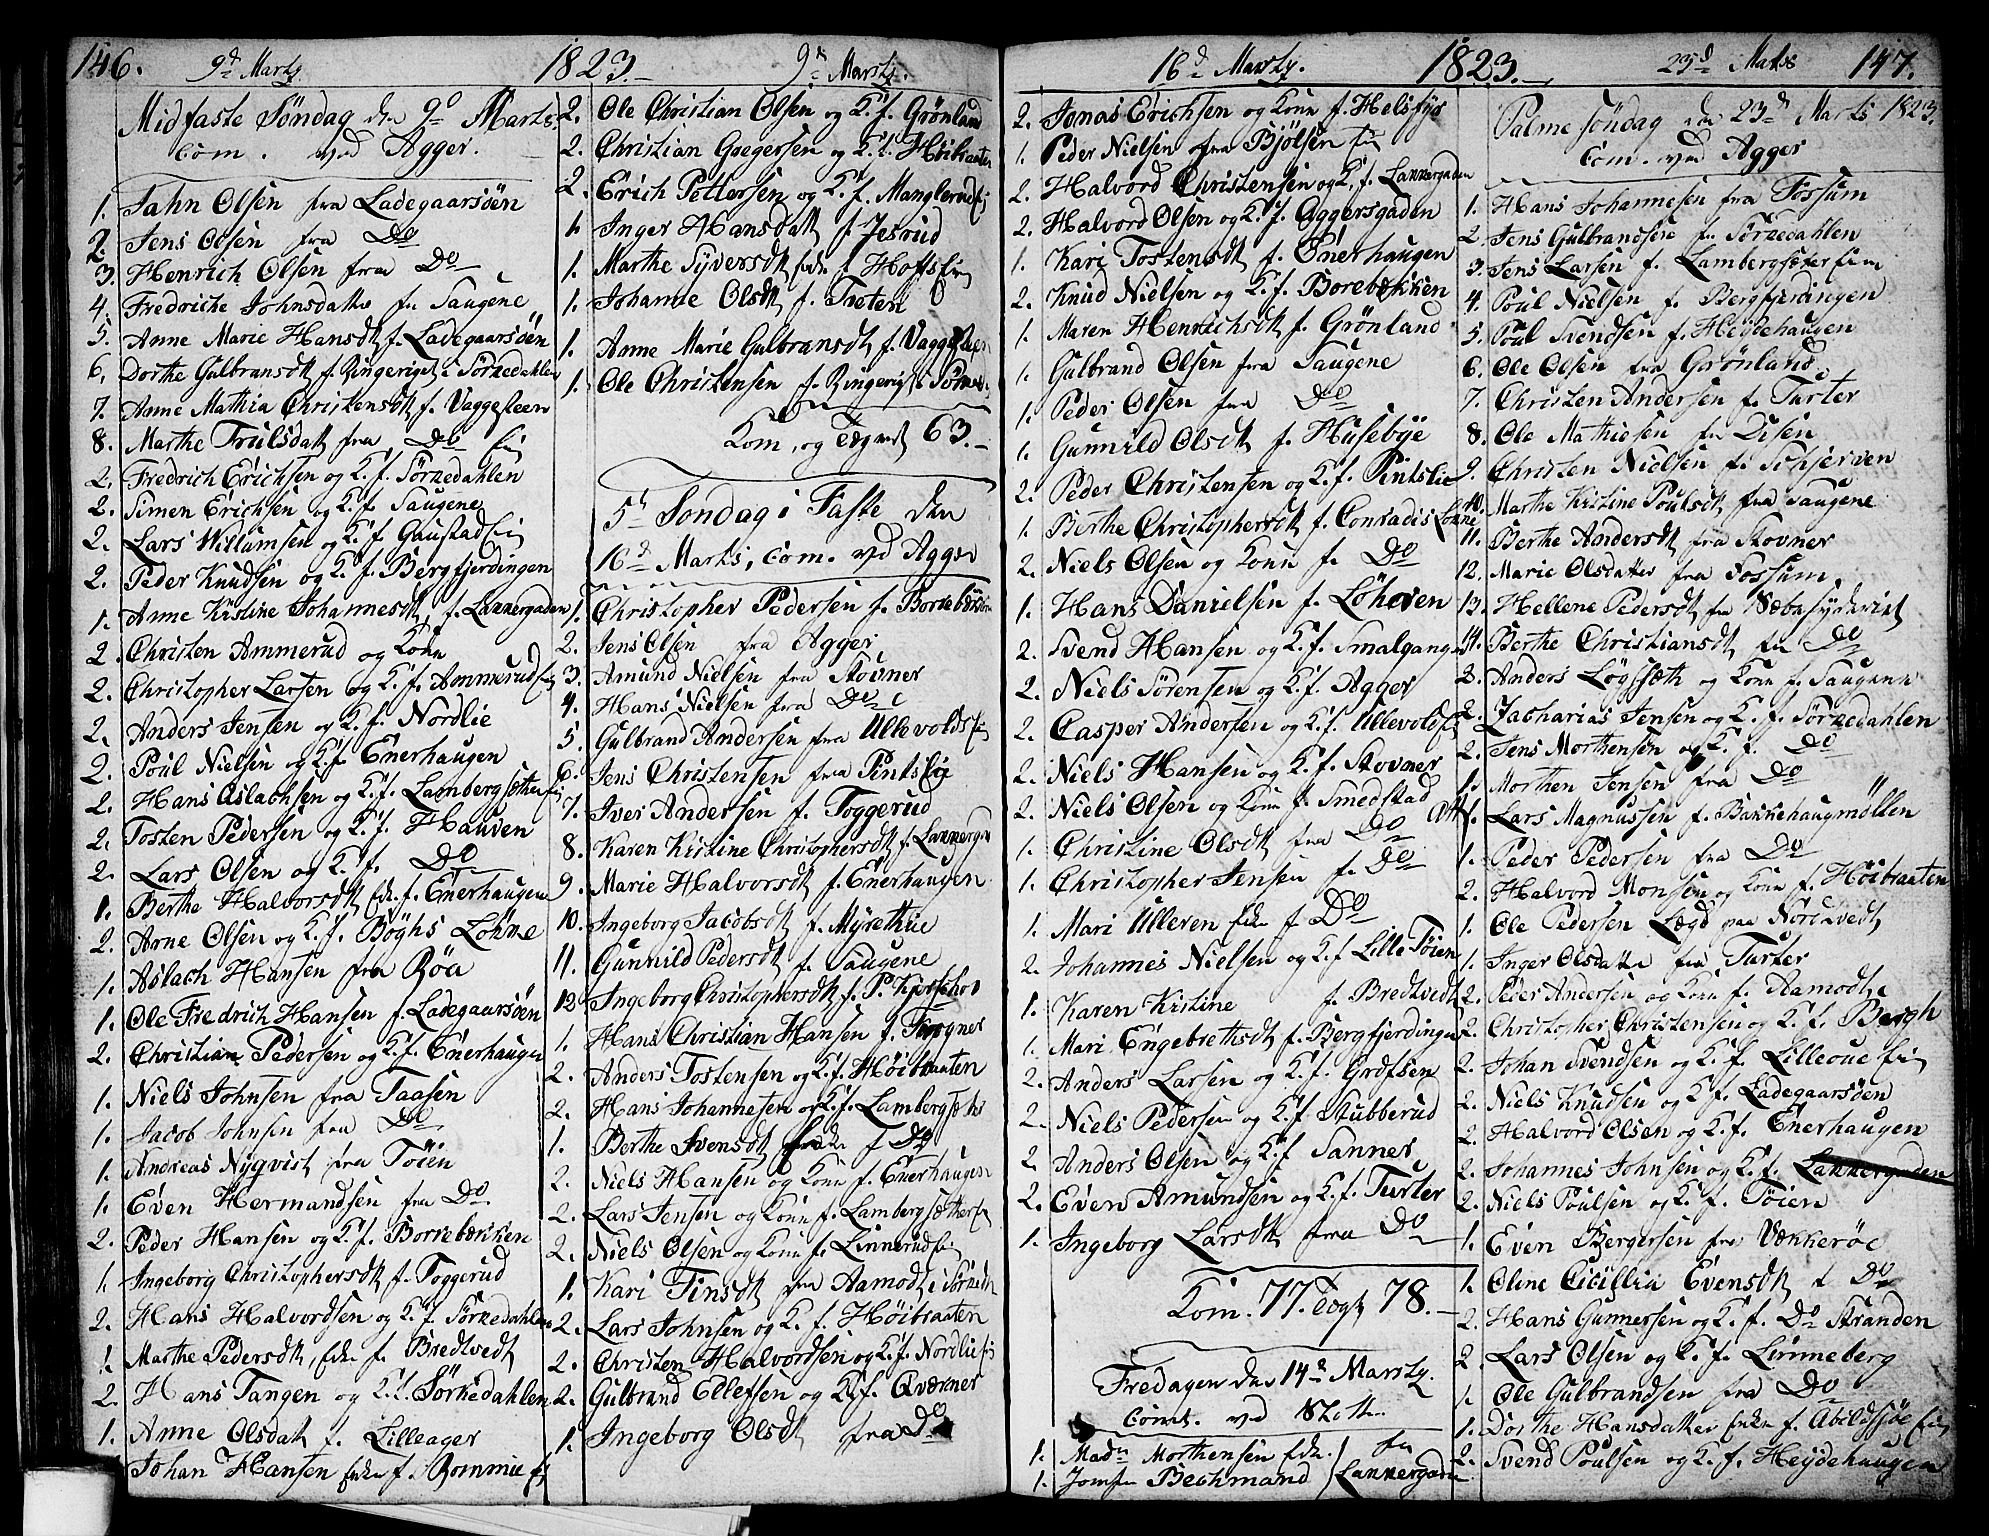 146. 9d Marts 1823. 9d Marts.
Midfaste Søndag den 9d Marts
Com. ved Agger.
1. Jahn Olsen fra Ladegaarsøen
2. Jens Olsen fra Do
3. Henrich Olsen fra Do
4. Fredriche Johnsdatter f. Saugene
5. Anne Marie Hansdt f. Ladegaarsöen
6. Dorthe Gulbransdt f. Ringeriget i Sörkedahlen
7. Anne Mathia Christensdt f. Vaggesteen
8. Marthe Trulsdatt fra Do
2. Fredrich Erichsen og K. f. Sörkedahlen
2. Simen Erichsen og K. f. Saugene
2. Lars Willumsen og K. f. Gaustad
2. Peder Knudsen og K. f. Bergfjerdingen
1. Anne Kistine Johannesdt f. Lakkergaden
2. Christen Ammerud og Konn
2. Christopher Larsen og K. f. Ammerud
2. Anders Jensen og K. f. Nordlie
2. Poul Nielsen og K. f. Enerhaugen
2. Hans Aslachsen og K. f. Lambergsæther
2. Tosten Pedersen og K. f. Hauven
2. Lars Olsen og K. f. Do
1. Berthe Halvorsdt Enke f. Enerhaugen
2. Arne Olsen og K. f. Böghs Lökke
1. Aslach Hansen fra Röa
1. Ole Fredrich Hansen f. Ladegaarsöen
2. Christian Pedersen og K. f. Enerhaugen
1. Niels Johnsen fra Taasen
1. Jacob Johnsen fra Do
1. Andreas Nyqvist fra Töien
1. Even Hermandsen fra Do
2. Peder Hansen og K. f. Borrebækken
1. Ingeborg Christophersdt f. Toggerud
2. Hans Halvordsen og K. f. Sörkedahlen
1. Marthe Pedersdt, Enke f. Bredtvedt
2. Hans Tangen og K. f. Sörkedahlen
1. Anne Olsdat f. Lilleager
1. Johan Hansen Enke f. Rommie
2. Ole Christian Olsen og K. f. Grönland
2. Christian Gregersen og K. f. Höibraaten
2. Erich Pettersen og K. f. Manglerud
1. Inger Hansdatt f. Jesrud
1. Marthe Syversdt Enke f. Hoffs
1. Johanne Olsdt f. Treten
1. Anne Marie Gulbransdt f. Vaggesteen
1. Ole Christensen f. Ringerigt i Sörk
Kom. og Tegnet 63.
5t Søndag i Faste den
16d Marts, Com. ved Agger
1. Christopher Pedersen f. Borrebækken
2. Jens Olsen fra Agger
3. Amund Nielsen fra Stovner
4. Hans Nielsen fra Do
5. Gulbrand Andersen fra Ullevolds
6. Jens Christensen fra Pintslie
7. Iver Andersen f. Toggerud
8. Karen Kistine Christophersdt f. Lakkergd
9. Marie Halvorsdt f. Enerhaugen
10. Ingeborg Jacobsdt f. Myrethue
11. Gunnild Pedersdt f. Saugene
12. Ingeborg Christophersdt f. P. Kjerschos
1. Hans Christian Hansen f. Trogner
2. Anders Tostensen og K. f. Höibraaten
2. Hans Johannesen og K. f. Lambergsæths
1. Berthe Svensdt Enke f. Do
2. Niels Hansen og Konn f. Enerhaugen
2. Lars Jensen og Konn f. Lambergsæther
2. Niels Olsen og Konn f. Linnerud
1. Kari Finsdt fra Aamodt i Sörkedt
2. Lars Johnsen og K. f. Höibraaten
2. Christen Halvordsen og K. f. Nordlie
2. Gulbrand Ellefsen og K. f. Qværner
1. Ingeborg Olsdt fra Do
16d Marts. 1823. 23d Marts 147.
2. Jonas Erichsen og Konn f. Helsfys
1. Peder Nielsen fra Bjölsen
2. Halvord Christensen og K. f. Lakkergaden
2. Halvord Olsen og K. f. Aggersgaden
1. Kari Tostensdt f. Enerhaugen
2. Knud Nielsen og K. f. Borebækken
1. Maren Henrichsdt f. Grönland
1. Gulbrand Olsen fra Saugene
1. Peder Olsen fra Do
1. Gunnild Olsdt f. Husebye
2. Peder Christensen og K. f. Pintslie
1. Berthe Christophersdt f. Conradis Lökke
2. Niels Olsen og Konn f. Do
1. Hans Danielsen f. Löhoven
2. Svend Hansen og K. f. Smalgangen
2. Niels Sörensen og K. f. Agger
2. Casper Andersen og K. f. Ullevold
2. Niels Hansen og K. f. Stovner
2. Niels Olsen og Konn f. Smedstad
1. Christine Olsdt fra Do
1. Christopher Jensen f. Do
1. Mari Ulleren Enke f. Do
2. Johannes Nielsen og K. f. Lille Töien
1. Karen Kistine f. Bredtvedt
1. Mari Engebrethsdt f. Bergfjerdingen
2. Anders Larsen og K. f. Grefsen
2. Niels Pedersen og K. f. Stubberud
2. Anders Olsen og K. f. Sanner
2. Even Amundsen og K. f. Turter
1. Ingeborg Larsdt fra Do
Kom. 77. Tegt 78.
Fredagen den 14d Marts.
Com. ved Slott.
1. Madm Morthensen Enke fra
1. Jomf Bechmand Lakkergaden
Palme söndag den 23d Marts 1823.
Com. ved Agger
1. Hans Johannesen fra Fossum
2. Jens Gulbrandsen f. Sörkedahlen
3. Jens Larsen f. Lambergsæter
4. Poul Nielsen f. Bergfjerdingen
5. Poul Svendsen f. Heidehaugen
6. Ole Olsen fra Grönland
7. Christen Andersen f. Turter
8. Ole Mathiesen fra Disen
9. Christen Nielsen f. Schjerven
10. Marthe Kristine Poulsdt fra Saugene
11. Berthe Andersdt fra Stovner
12. Marie Olsdatter fra Fossum
13. Hellene Pedersdt fra
14. Berthe Christiansdt fra Do
2. Anders Lögsæth og Konn f. Saugene
2. Zacharias Jensen og K. f. Sörkedahlen
2. Jens Morthensen og K. f. Do
1. Morthen Jensen fra Do
1. Lars Magnussen f. Bakkehaugmöllen
1. Peder Pedersen fra Do
2. Halvord Monsen og Konn f. Höibraaten
1. Ole Pedersen Lægd paa Nordtvedt
1. Inger Olsdatter fra Turter
2. Peder Andersen og Konn f. Aamodt
2. Christopher Christensen og K. f. Bergh
2. Johan Svendsen og K. f. Lilleoue
2. Niels Knudsen og K. f. Ladegaarsöen
2. Halvord Olsen og K. f. Enerhaugen
2. Johannes Johnsen og K. f. Lakkergaden
2. Niels Poulsen og K. f. Töien
1. Even Bergersen fra Vækkeröe
1. Oline Cicillia Evensdt f. Do
2. Hans Gunnersen og K. f. Do Stranden
2. Lars Olsen og K. f. Linneberg
1. Ole Gulbrandsen fra Do
1. Dorthe Hansdatter Enke f. Abildsöe
2. Svend Poulsen og K. f. Heydehaugen